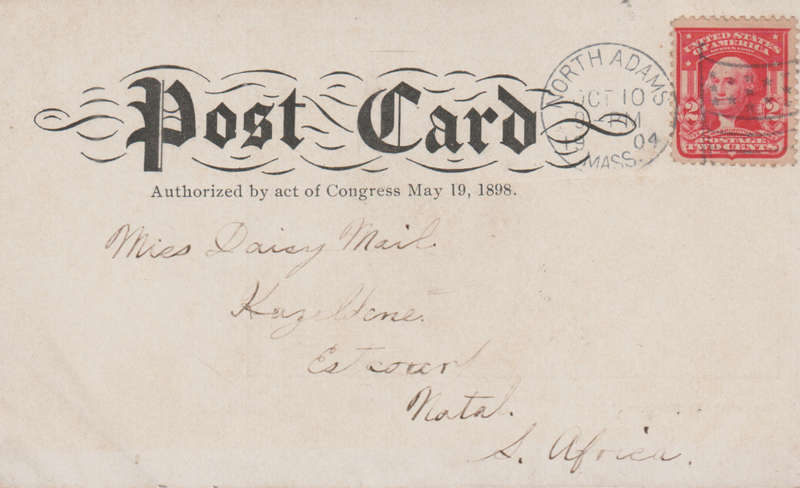 Post Card
Authorized by act of Congress May 19, 1898.
NORTH ADAMS
OCT 10
PM
04
MASS.
UNITED STATES
OF AMERICA
2 2
POSTAGE
TWO CENTS
Miss Daisy Mail.
Hazeldene.
Estcourt
Natal.
S. Africa.